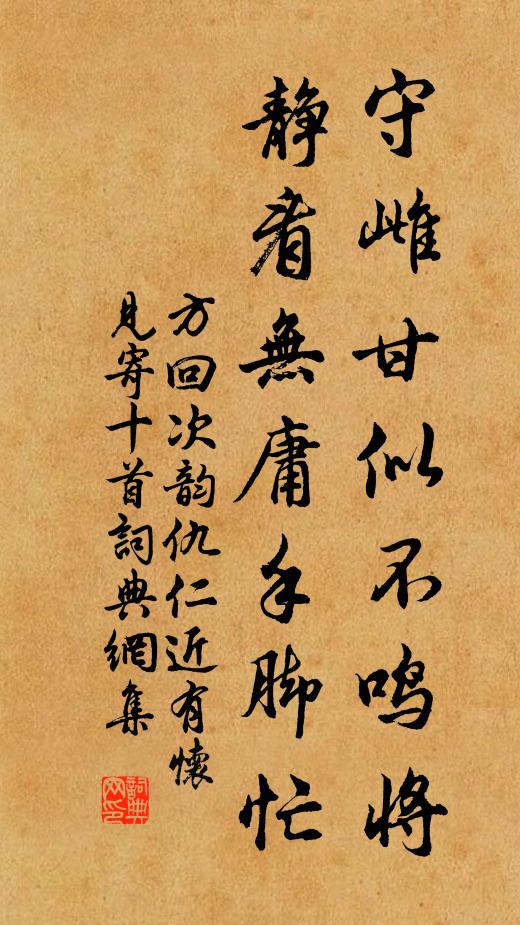 守雌甘似不鸣將
静看無庸手脚忙
方回次韵仇仁近有懷
見寄十首詞典網集
詞典网印